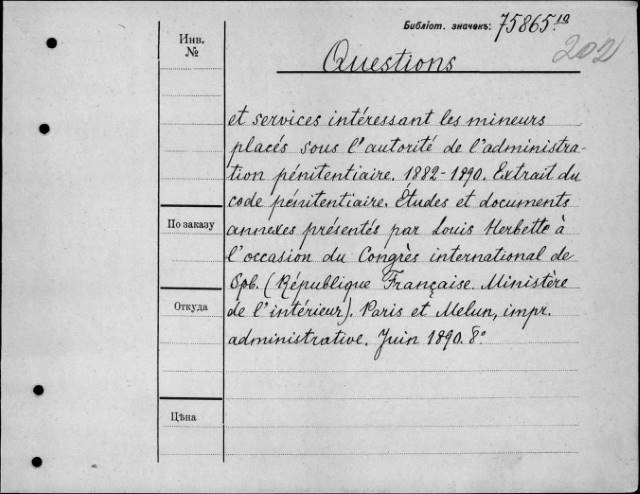 Библіот. значекъ: 75865.¹²
202
Инв.
№
Questions
et services intéressant les mineurs
placés sous l'autorité de l'administra-
tion pénitentiaire. 1882-1890. Extrait du
code pénitentiaire. Études et documents
annexes présentés par Louis Herbette à
l'occasion du Congrès international de
Spb. (République Française. Ministère
de l'intérieur). Paris et Melun, impr.
administrative. Juin 1890. 8º
По заказу
Откуда
Цѣна